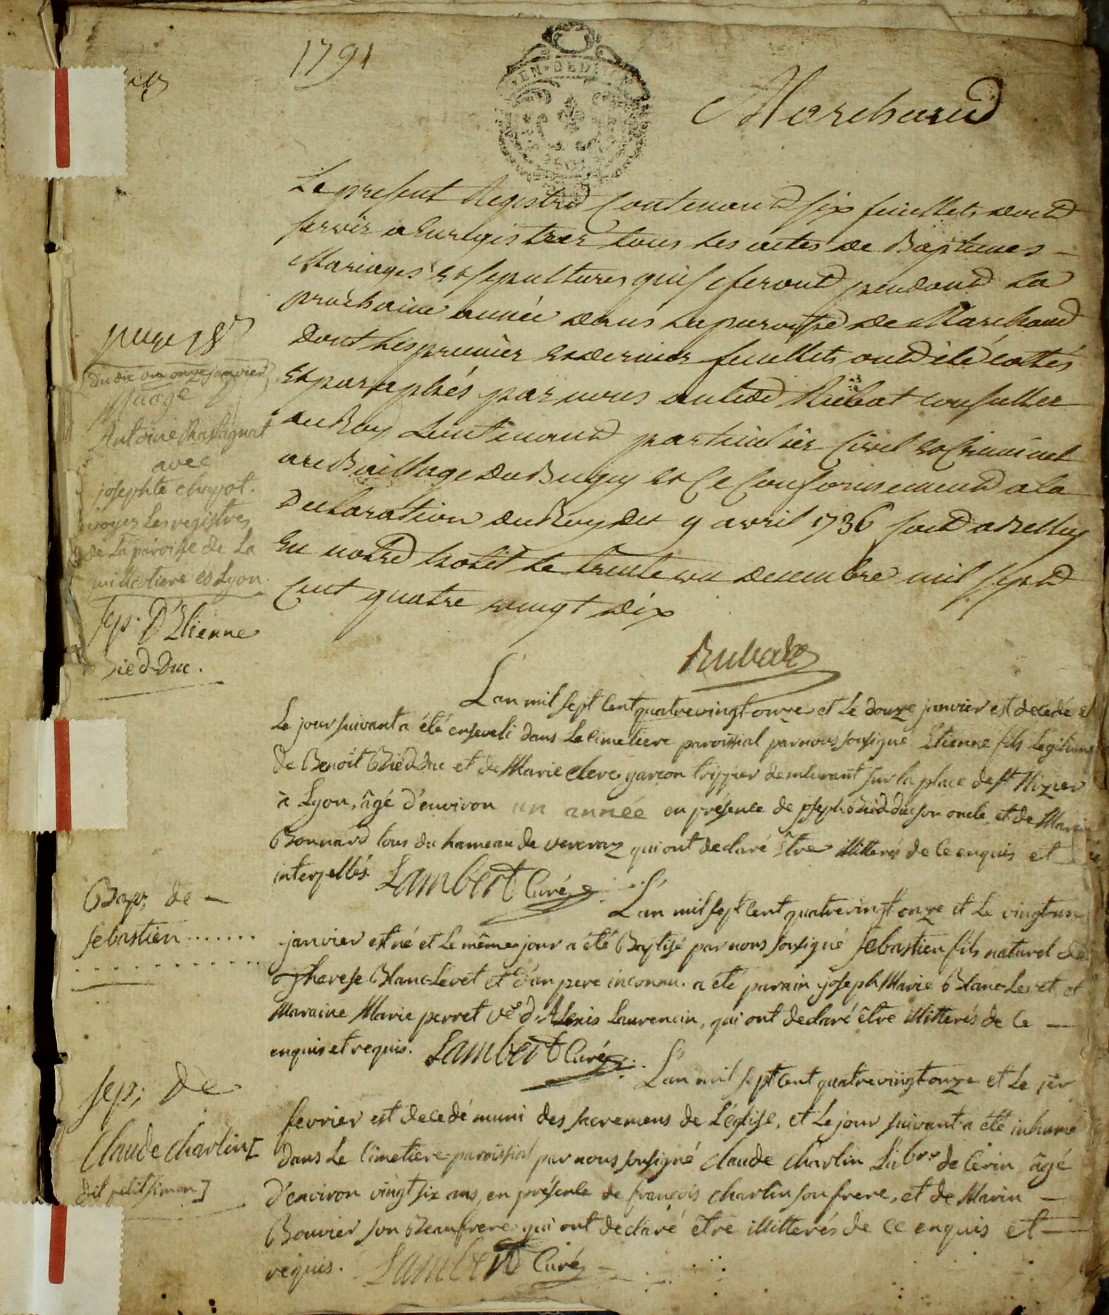 1791
Marchand
Le present Registre Contenant six feuillets doit
servir a Enregistrer tous les actes de Baptemes
Mariages et sepultures qui se feront pendant la
prochaine année dans la paroisse de Marchand
Dont les premier et dernier feuillets ont été cottés
et paraphés par nous conseiller
au Roy Lieutenant particulier Civil et Criminel
au Bailliage du Bugey et Ce Conformement a la
Declaration du Roy du 9 avril 1736 fait a Belley
En notre hotel le trente un decembre mil sept
Cent quatre vingt dix
page 18
du dix ou onze janvier
Antoine
avec
josephte
voyez les registres
de la paroisse de La
et Lyon.
sep. D'Etienne
Bied-Duc.
L'an mil sept cent quatrevingt onze et le douze janvier est decedé et
le jour suivant a été enseveli dans le cimetiere paroissial par nous soussigné Etienne fils legitime
de Benoît Bied-Duc et de Marie clerc garcon fripier demeurant sur la place de st Nizier
à Lyon, âgé d'environ un année en présence de joseph Bied-duc son oncle et de Marin
Bonnard tous du hameau de qui ont declaré être illitterés de ce enquis et
interpellés. Lambert Curé
Bap; de
sebastien.......
L'an mil sept cent quatrevingt onze et le vingtun
janvier est né et le même jour a été Baptisé par nous soussigné sebastien fils naturel de
Therese Blanc-Levet et d'un pere inconnu. a été parrain joseph Marie Blanc-Levet, et
Maraine Marie perret ve d'Alexis Laurencin, qui ont declaré être illitterés de ce
enquis et requis. Lambert Curé
Sep; de
Claude charlin
dit petit simon
L'an mil sept cent quatrevingt onze et le 1er
fevrier est decedé muni des sacremens de l'église, et le jour suivant a été inhumé
dans le cimetiere paroissial par nous soussigné claude charlin Labr de Cerin, âgé
d'environ vingt six ans, en présence de françois charlin son frere, et de Marin
Bouvier son Beaufrere qui ont declaré être illitterés de ce enquis et
requis. Lambert Curé